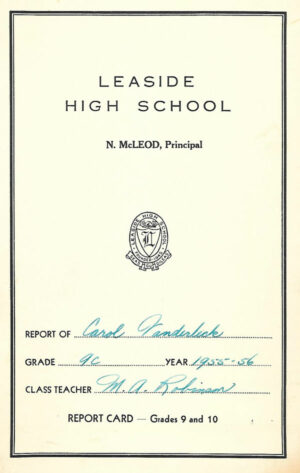 LEASIDE
HIGH SCHOOL
N. McLEOD, Principal
LEASIDE HIGH SCHOOL
L
REPORT OF Carol Vanderlick
GRADE 9C YEAR 1955-56
CLASS TEACHER M. A. Robinson
REPORT CARD — Grades 9 and 10